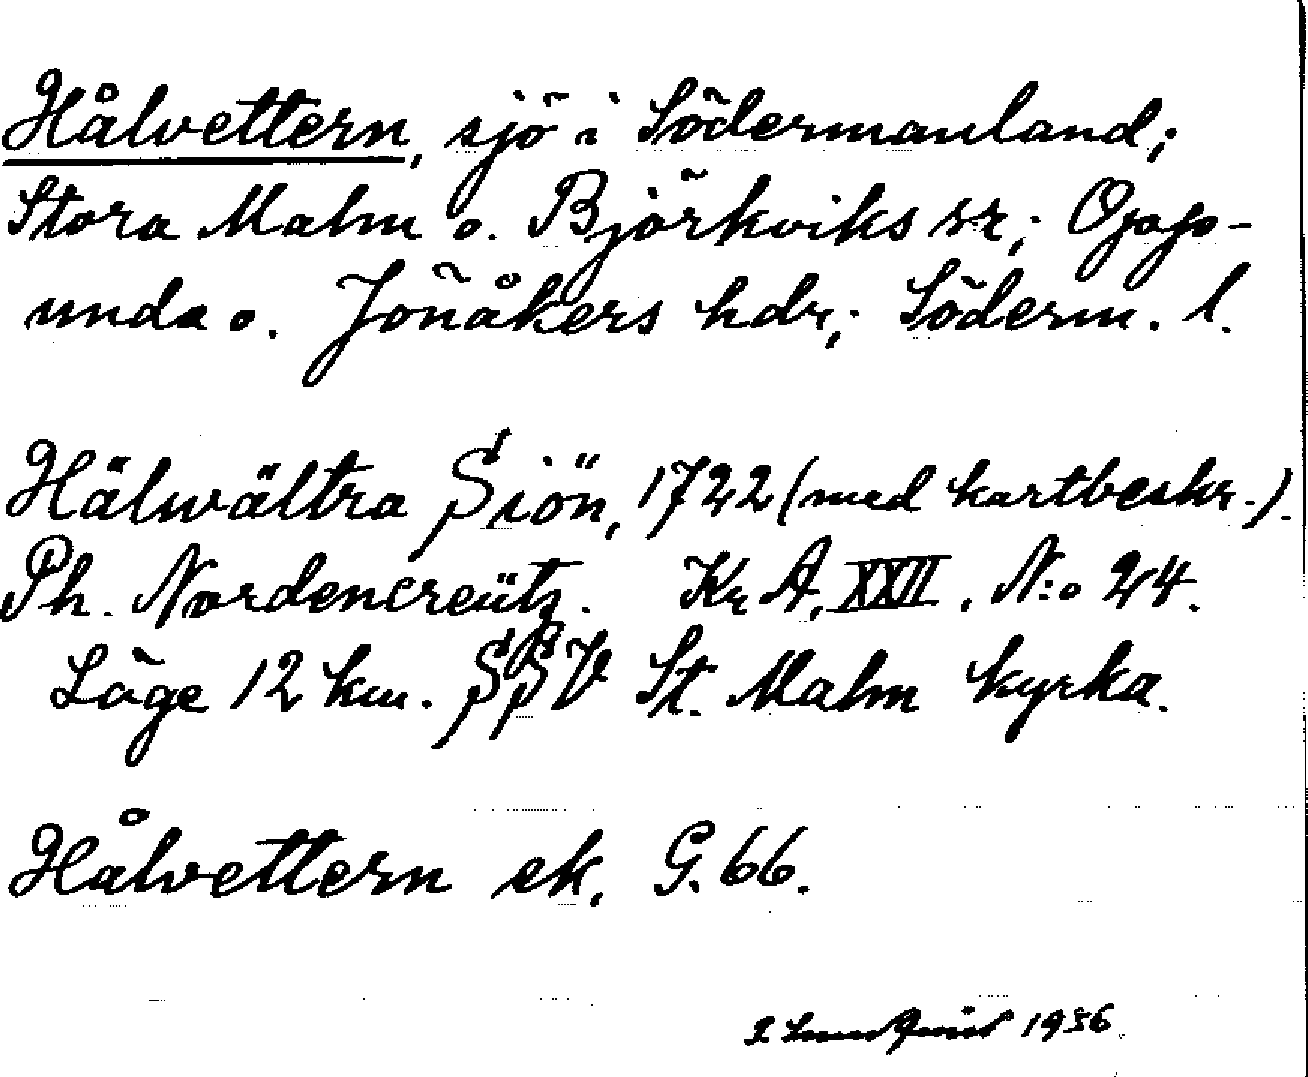 Hålvettern, sjö i Södermanland;
Stora Malm o. Björkviks sr; Oppo-
unda o. Jönåkers hdr; Söderm. l.
Hälwältra Siön, 1722 (med kartbeskr.).
Ph. Nordencreütz. Kr A, XXII, N:o 24.
Läge 12 km. SSV St. Malm kyrka.
Hålvettern ek. G. 66.
1936